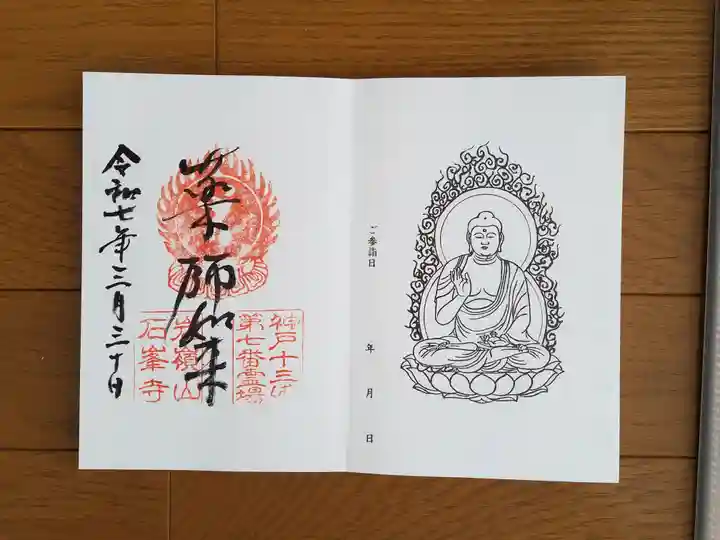 ご参詣日
年
月
日
神戸十三佛
第七番霊場
薬師如来
岩嶺山
石峯寺
令和七年三月三十日